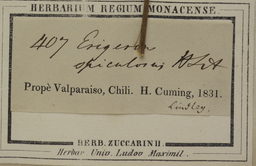 HERBARIUM REGIUM MONACENSE.
407 Erigeron
spiculosus H & A
Propè Valparaiso, Chili. H. Cuming, 1831.
Lindley.
HERB. ZUCCARINII
Herbar. Univ. Ludov. Maximil.